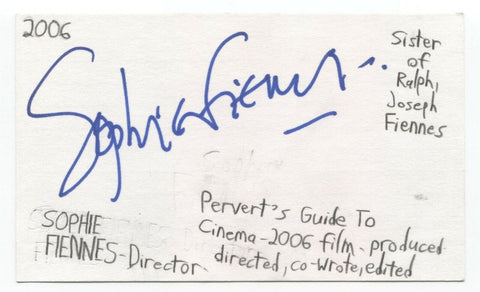 2006
Sister
of
Ralph,
Joseph
Fiennes
Sophie Fiennes
SOPHIE
FIENNES-Director
Pervert's Guide To
Cinema-2006 film-produced
directed, co-wrote, edited